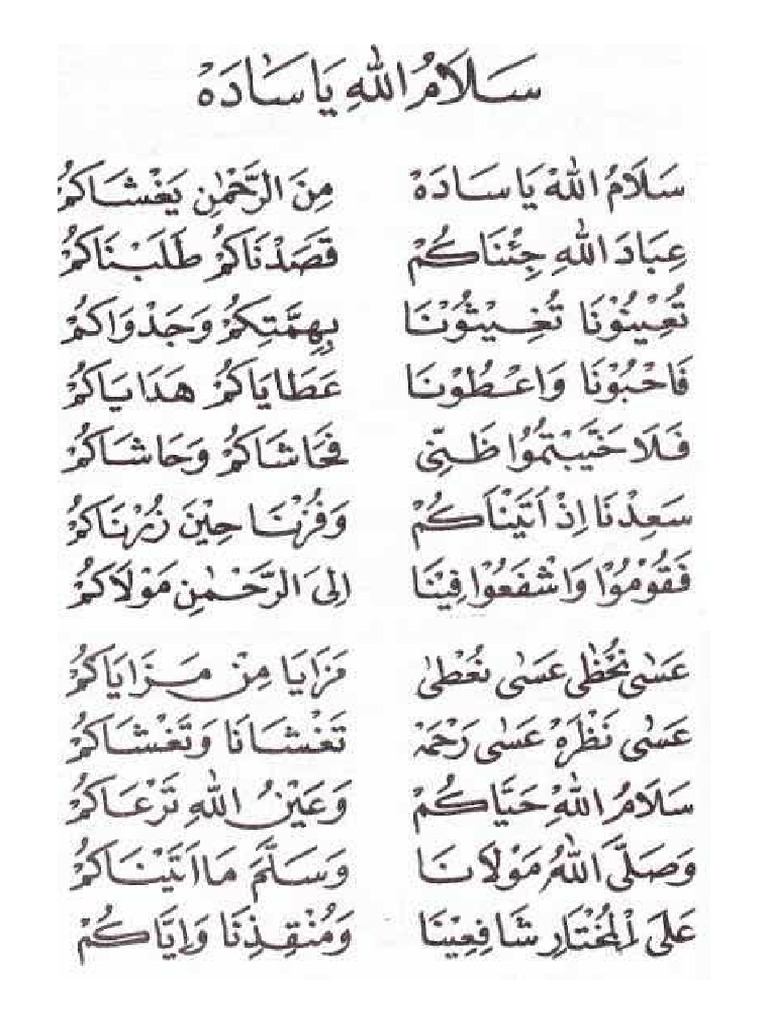 سَلَامُ اللّٰهِ يَا سَادَهْ
سَلَامُ اللّٰهِ يَا سَادَهْ مِنَ الرَّحْمٰنِ يَغْشَاكُمْ
عِبَادَ اللّٰهِ جِئْنَاكُمْ قَصَدْنَاكُمْ طَلَبْنَاكُمْ
تُعِيْنُوْنَا تُغِيْثُوْنَا بِهِمَّتِكُمْ وَجَدْوَاكُمْ
فَاحْبُوْنَا وَاعْطُوْنَا عَطَايَاكُمْ هَدَايَاكُمْ
فَلَا خَيَّبْتُمُوْا ظَنِّى فَحَاشَاكُمْ وَحَاشَاكُمْ
سَعِدْنَا اِذْ اَتَيْنَاكُمْ وَفُزْنَا حِيْنَ زُرْنَاكُمْ
فَقُوْمُوْا وَاشْفَعُوْا فِيْنَا اِلَى الرَّحْمٰنِ مَوْلَاكُمْ
عَسٰى نُحْظٰى عَسٰى نُعْطٰى مَزَايَا مِنْ مَزَايَاكُمْ
عَسٰى نَظْرَهْ عَسٰى رَحْمَهْ تَغْشَانَا وَتَغْشَاكُمْ
سَلَامُ اللّٰهِ حَيَّاكُمْ وَعَيْنُ اللّٰهِ تَرْعَاكُمْ
وَصَلَّى اللّٰهُ مَوْلَانَا وَسَلَّمَ مَا اَتَيْنَاكُمْ
عَلَى الْمُخْتَارِ شَافِعِيْنَا وَمُنْقِذِنَا وَاِيَّاكُمْ